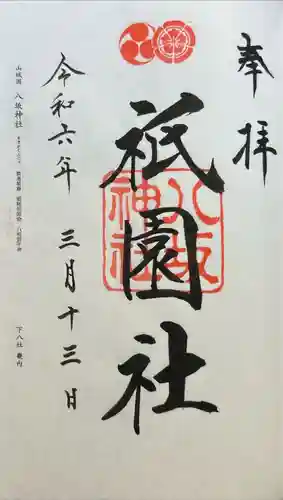 奉拝
祇園社
八坂神社
令和六年 三月十三日
山城国 八坂神社
下八社 畿内